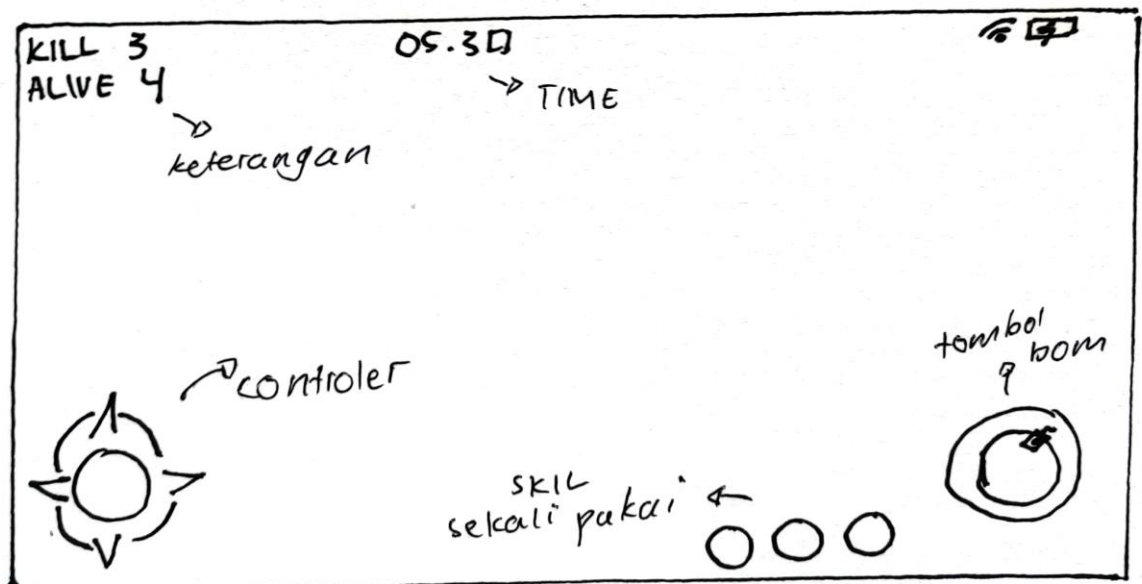 KILL 3
ALIVE 4
05.30
TIME
keterangan
controler
tombol
bom
SKIL
sekali pakai